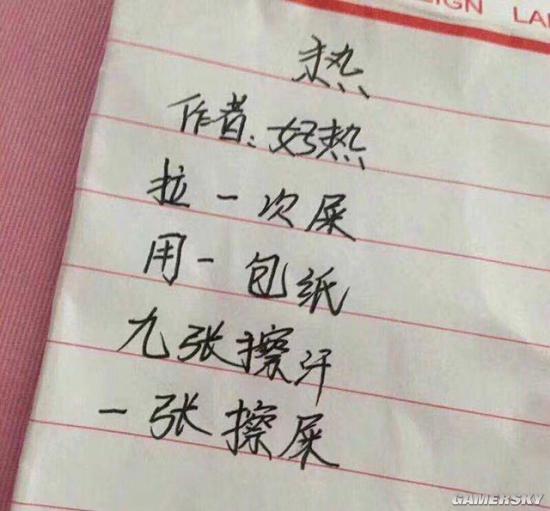 IGN LAN
热
作者:好热
拉一次屎
用一包纸
九张擦汗
一张擦屎
GAMERSKY